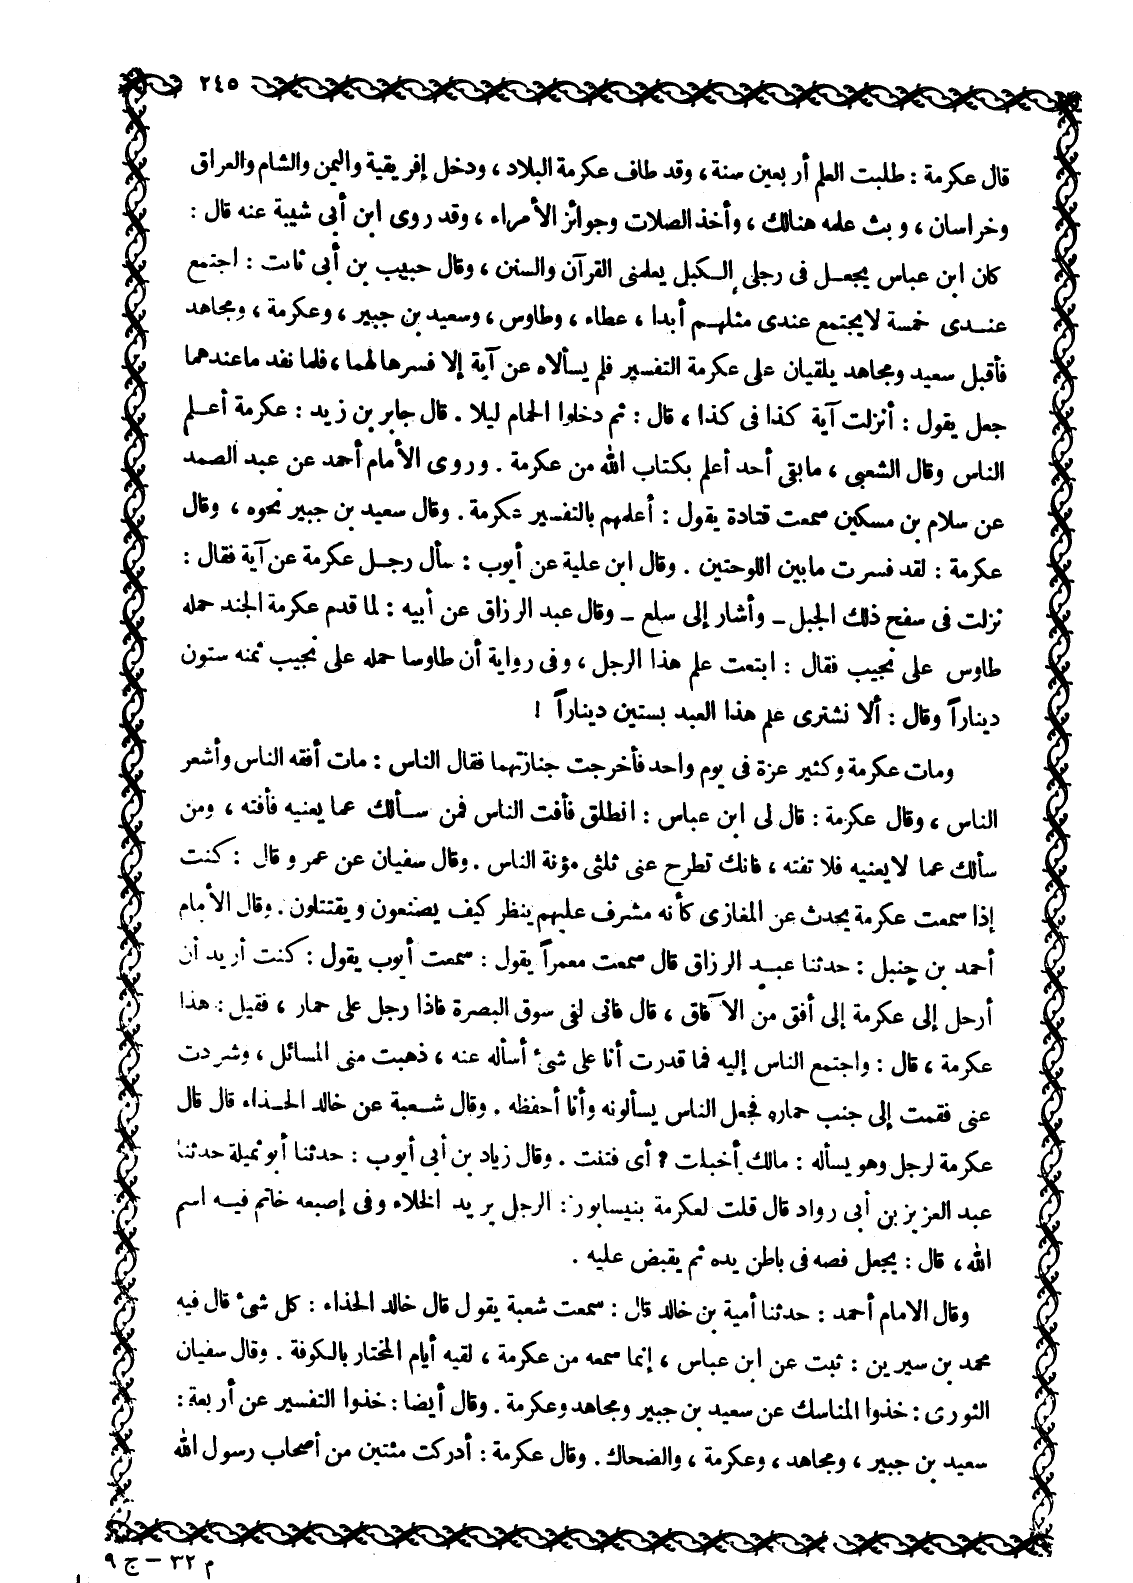 ٢٤٥
قال عكرمة : طلبت العلم أربعين سنة ، وقد طاف عكرمة البلاد ، ودخل إفريقية واليمن والشام والعراق
وخراسان ، وبث علمه هنالك ، وأخذ الصلات وجوائز الأمراء ، وقد روى ابن أبى شيبة عنه قال :
كان ابن عباس يجعل فى رجلى الكبل يعلمنى القرآن والسنن ، وقال حبيب بن أبى ثابت : اجتمع
عندى خمسة لا يجتمع عندى مثلهم أبدا ، عطاء ، وطاوس ، وسعيد بن جبير ، وعكرمة ، ومجاهد
فأقبل سعيد ومجاهد يلقيان على عكرمة التفسير فلم يسألاه عن آية إلا فسرها لهما ، فلما نفد ما عندهما
جعل يقول : أنزلت آية كذا فى كذا ، قال : ثم دخلوا الحمام ليلا . قال جابر بن زيد : عكرمة أعلم
الناس وقال الشعبى ، ما بقى أحد أعلم بكتاب الله من عكرمة . وروى الأمام أحمد عن عبد الصمد
عن سلام بن مسكين سمعت قتادة يقول : أعلمهم بالتفسير عكرمة . وقال سعيد بن جبير نحوه ، وقال
عكرمة : لقد فسرت ما بين اللوحتين . وقال ابن علية عن أيوب : سأل رجل عكرمة عن آية فقال :
نزلت فى سفح ذلك الجبل - وأشار إلى سلع - وقال عبد الرزاق عن أبيه : لما قدم عكرمة الجند حمله
طاوس على نجيب فقال : ابتعت علم هذا الرجل ، وفى رواية أن طاوسا حمله على نجيب ثمنه ستون
ديناراً وقال : ألا نشترى علم هذا العبد بستين ديناراً !
ومات عكرمة وكثير عزة فى يوم واحد فأخرجت جنازتهما فقال الناس : مات أفقه الناس وأشعر
الناس ، وقال عكرمة : قال لى ابن عباس : انطلق فأفت الناس فمن سألك عما يعنيه فأفته ، ومن
سألك عما لا يعنيه فلا تفته ، فانك تطرح عنى ثلثى مؤنة الناس . وقال سفيان عن عمرو قال : كنت
إذا سمعت عكرمة يحدث عن المغازى كأنه مشرف عليهم ينظر كيف يصنعون ويقتتلون . وقال الأمام
أحمد بن حنبل : حدثنا عبد الرزاق قال سمعت معمراً يقول : سمعت أيوب يقول : كنت أريد أن
أرحل إلى عكرمة إلى أفق من الآفاق ، قال فانى لفى سوق البصرة فاذا رجل على حمار ، فقيل : هذا
عكرمة ، قال : واجتمع الناس إليه فما قدرت أنا على شئ أسأله عنه ، ذهبت منى المسائل ، وشردت
عنى فقمت إلى جنب حماره فجعل الناس يسألونه وأنا أحفظه . وقال شعبة عن خالد الحذاء قال قال
عكرمة لرجل وهو يسأله : مالك أخبلت ؟ أى فتنت . وقال زياد بن أبى أيوب : حدثنا أبو تميلة حدثنا
عبد العزيز بن أبى رواد قال قلت لعكرمة بنيسابور : الرجل يريد الخلاء وفى إصبعه خاتم فيه اسم
الله ، قال : يجعل فصه فى باطن يده ثم يقبض عليه .
وقال الامام أحمد : حدثنا أمية بن خالد قال : سمعت شعبة يقول قال خالد الحذاء : كل شئ قال فيه
محمد بن سيرين : ثبت عن ابن عباس ، إنما سمعه من عكرمة ، لقيه أيام المختار بالكوفة . وقال سفيان
الثورى : خذوا المناسك عن سعيد بن جبير ومجاهد وعكرمة . وقال أيضا : خذوا التفسير عن أربعة :
سعيد بن جبير ، ومجاهد ، وعكرمة ، والضحاك . وقال عكرمة : أدركت مئتين من أصحاب رسول الله
م ٣٢ - ج ٩